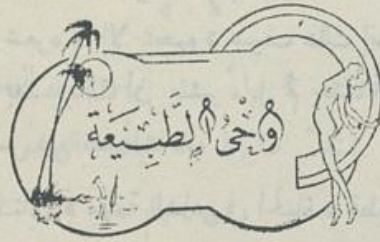 وَحْىُ الطَّبِيْعَة